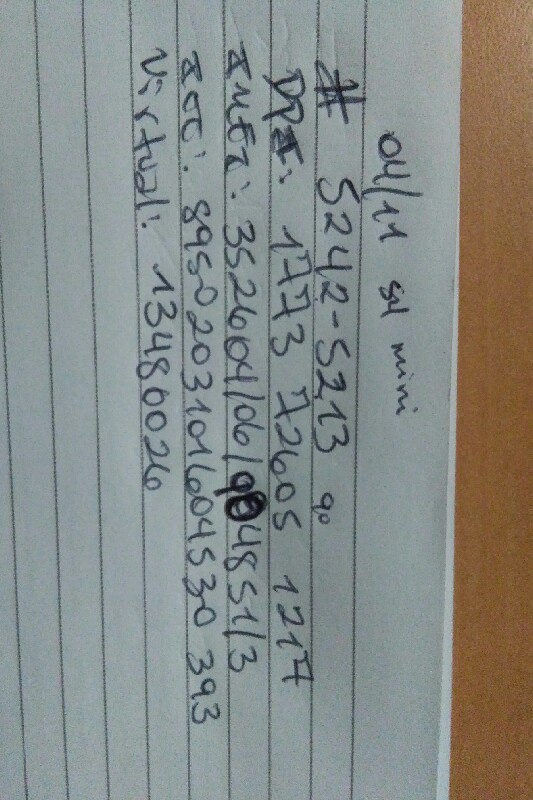 04/11 s4 mini
# 5242-5213 90
DPI: 1773 72605 1217
IMEI: 352604/06/904851/3
ICC: 8950203101604530 393
Virtual: 13480026